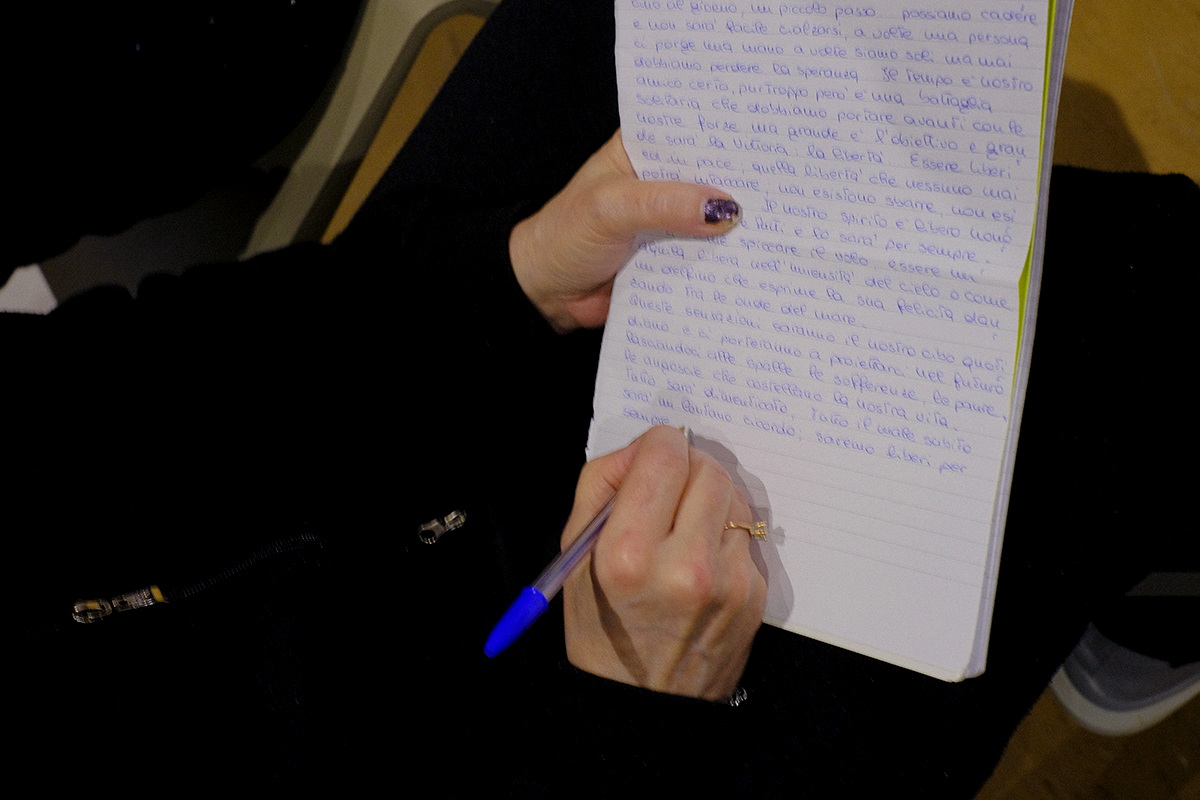 uno al giorno, un piccolo passo possiamo cadere
e non sara' facile rialzarsi, a volte una persona
ci porge una mano a volte siamo soli ma mai
dobbiamo perdere la speranza Il tempo e' nostro
amico certo, purtroppo pero' e' una battaglia
solitaria che dobbiamo portare avanti con le
nostre forze ma grande e' l'obiettivo e gran
de sara' la vittoria la liberta' Essere liberi
ed in pace, quella liberta' che nessuno mai
potra' intaccare, non esistono sbarre, non esi
Il nostro spirito e' libero
tutti e lo sara' per sempre.
spiccare il volo, essere un'
aquila libera nell'immensita' del cielo o come
un delfino che esprime la sua felicita' dan
zando tra le onde del mare.
Queste sensazioni saranno il nostro cibo quoti
diano e ci porteranno a proiettarci nel futuro
lasciandoci alle spalle le sofferenze, le paure,
le angoscie che costellano la nostra vita.
Tutto sara' dimenticato, tutto il male subito
sara' un lontano ricordo, saremo liberi per
sempre